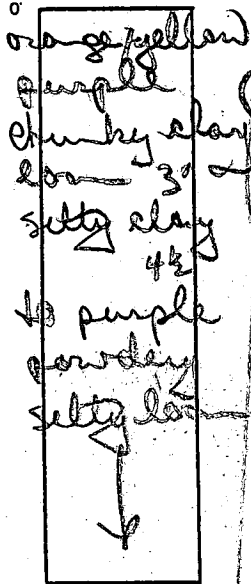 0'
orange/yellow
purple
chunky clay
loam 3'
silty clay
4½
to purple
powdery
silty loam